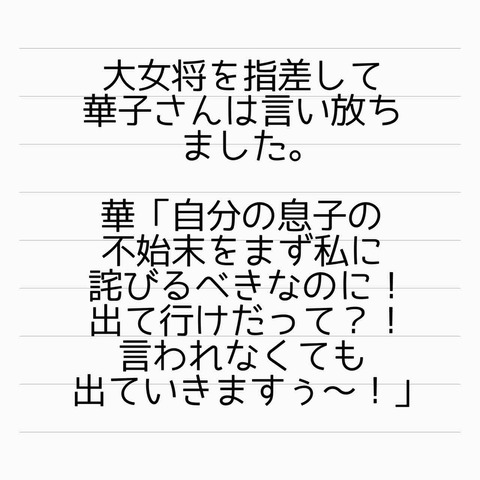 大女将を指差して
華子さんは言い放ち
ました。
華「自分の息子の
不始末をまず私に
詫びるべきなのに！
出て行けだって？！
言われなくても
出ていきますぅ〜！」